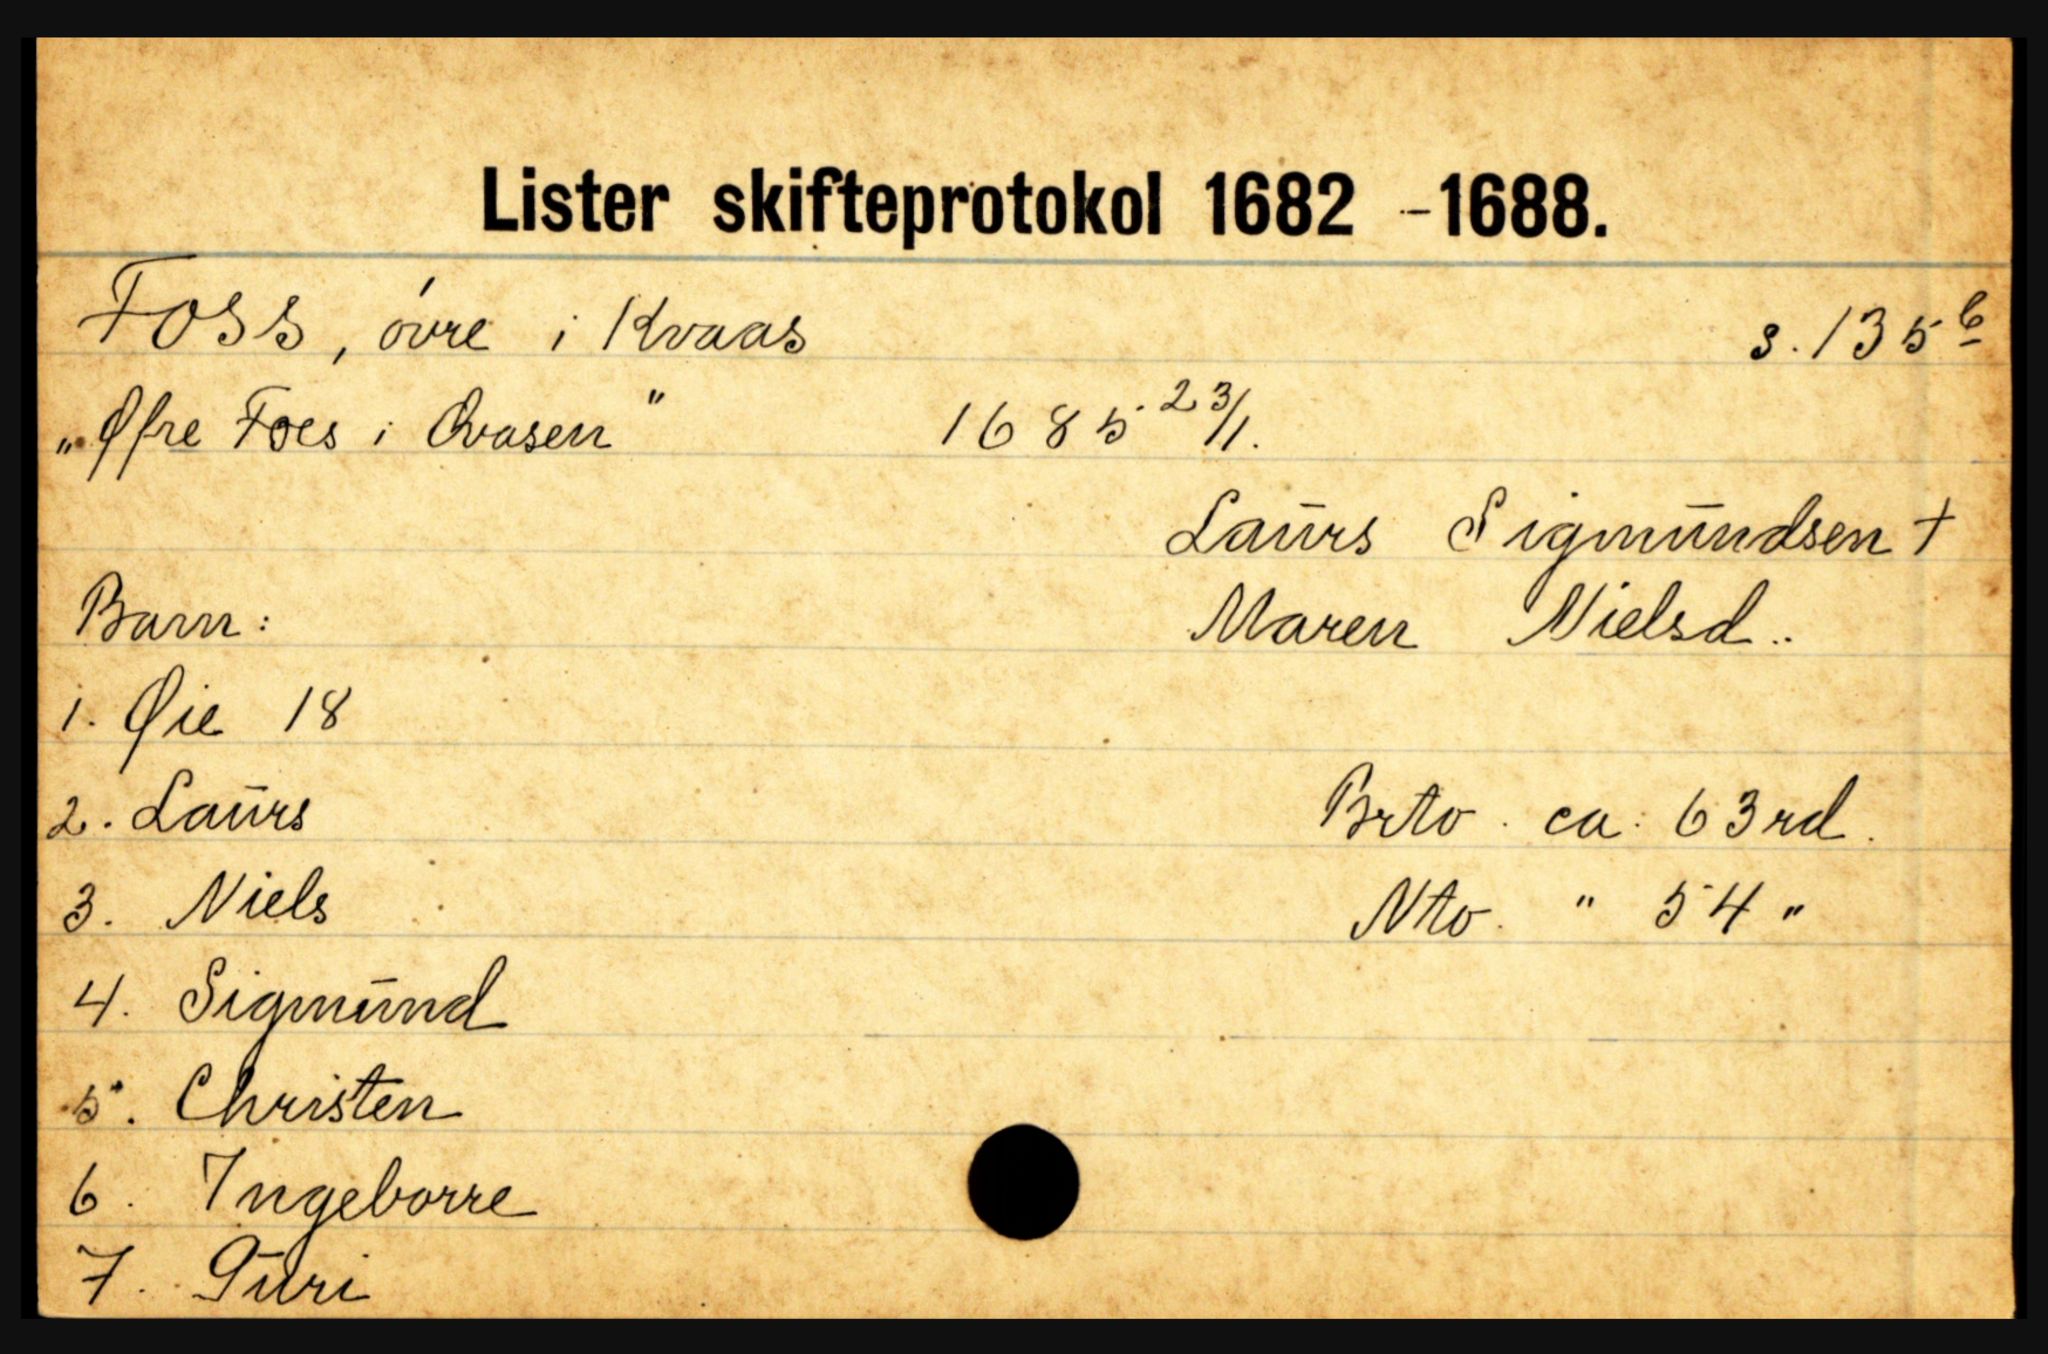 Lister skifteprotokol 1682 - 1688.
Foss, óvre i Kvaas s. 135 b
„Øfre Foes i Qvasen" 1685 23/1.
Laūrs Sigmūndsen +
Barn: Maren Nielsd..
1. Øie 18
2. Laūrs Brto. ca. 63 rd.
3. Niels Nto. " 54 "
4. Sigmūnd
5. Christen
6. Ingeborre
7. Gūri